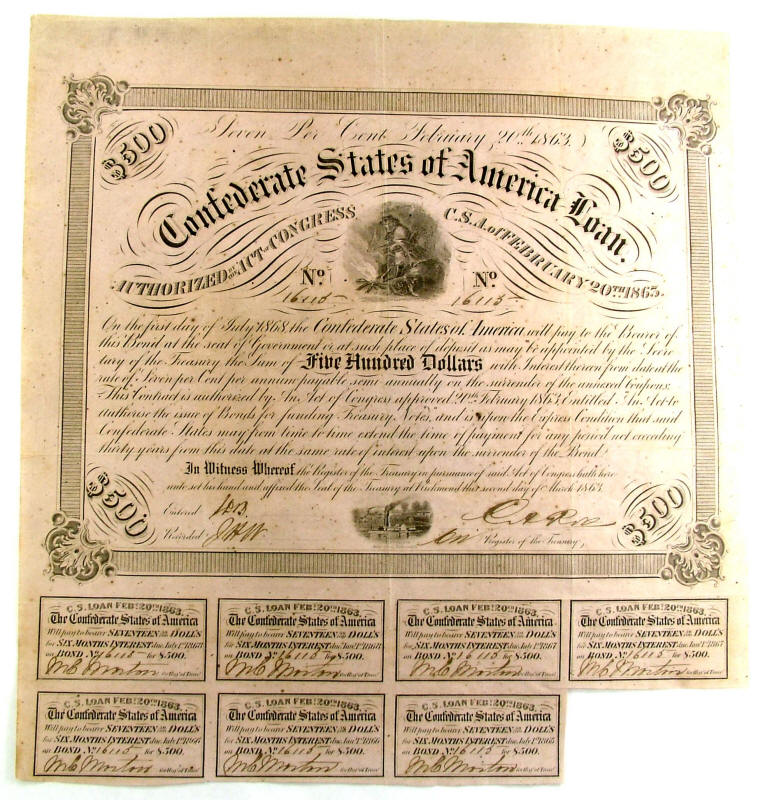 Seven Per Cent. February 20th 1863.
$500 $500
Confederate States of America Loan.
AUTHORIZED BY ACT OF CONGRESS C.S.A. of FEBRUARY 20TH 1863.
No. No.
16115 16115
On the first day of July 1868, the Confederate States of America, will pay to the Bearer of
this Bond at the seat of Government or at such place of deposit as may be appointed by the Secre
tary of the Treasury the Sum of Five Hundred Dollars with Interest thereon from date at the
rate of Seven per Cent per annum payable semi annually on the surrender of the annexed Coupons.
This Contract is authorized by An Act of Congress approved 20th February 1863, Entitled "An Act to
authorise the issue of Bonds for funding Treasury Notes," and is upon the Express Condition that said
Confederate States may from time to time extend the time of payment for any period not exceeding
thirty years from this date at the same rate of interest upon the surrender of the Bond.
In Witness Whereof, the Register of the Treasury in pursuance of said Act of Congress hath here
unto set his hand and affixed the Seal of the Treasury at Richmond this second day of March 1863.
Entered
Recorded
Register of the Treasury,
$500 $500
C.S. LOAN FEB. 20TH 1863.
The Confederate States of America
Will pay to bearer SEVENTEEN DOLL'S
for SIX MONTHS INTEREST due July 1st 1868
on BOND No. 16115 for $500.
C.S. LOAN FEB. 20TH 1863.
The Confederate States of America
Will pay to bearer SEVENTEEN DOLL'S
for SIX MONTHS INTEREST due
on BOND No. 16115 for $500.
C.S. LOAN FEB. 20TH 1863.
The Confederate States of America
Will pay to bearer SEVENTEEN DOLL'S
for SIX MONTHS INTEREST due July 1st 1867
on BOND No. 16115 for $500.
C.S. LOAN FEB. 20TH 1863.
The Confederate States of America
Will pay to bearer SEVENTEEN DOLL'S
for SIX MONTHS INTEREST due Jan. 1st 1867
on BOND No. 16115 for $500.
C.S. LOAN FEB. 20TH 1863.
The Confederate States of America
Will pay to bearer SEVENTEEN DOLL'S
for SIX MONTHS INTEREST due July 1st 1866
on BOND No. 16115 for $500.
C.S. LOAN FEB. 20TH 1863.
The Confederate States of America
Will pay to bearer SEVENTEEN DOLL'S
for SIX MONTHS INTEREST due Jan. 1st 1866
on BOND No. 16115 for $500.
C.S. LOAN FEB. 20TH 1863.
The Confederate States of America
Will pay to bearer SEVENTEEN DOLL'S
for SIX MONTHS INTEREST due July 1st 1865
on BOND No. 16115 for $500.